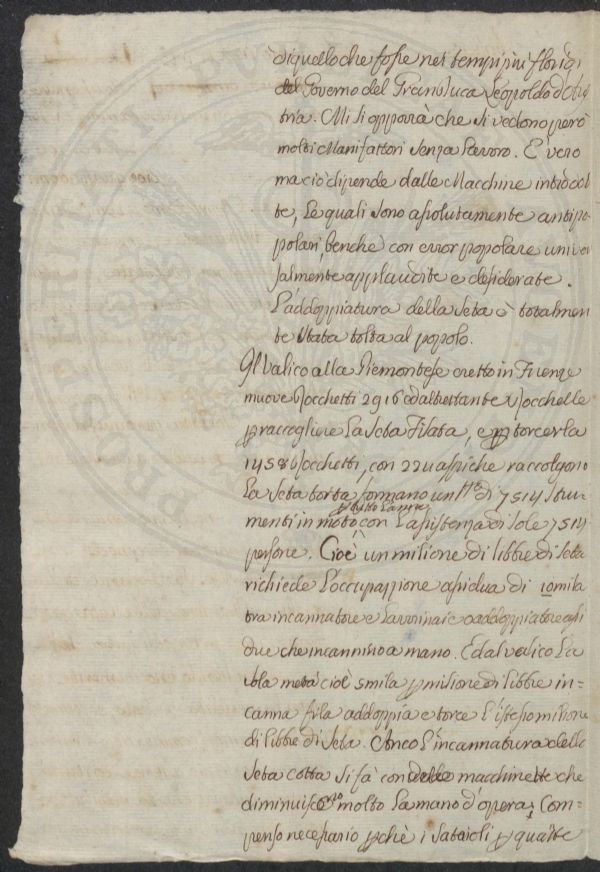 di quello che fosse nei tempi più floridi
del Governo del Granduca Leopoldo d'Au
stria. Mi si opporrà che si vedono però
molti Manifattori senza Lavoro. E vero
ma ciò dipende dalle Macchine introdot
te, Le quali sono assolutamente antipo
polari, benche con error popolare univer
salmente applaudite e desiderate.
L'addoppiatura della Seta è totalmen
te stata tolta al popolo.
Il Valico alla Piemontese eretto in Firenze
muove Rocchetti 2916 ed altrettante Rocchelle
p raccogliere La Seta Filata, e p torcerla
1458 Rocchetti, con 224 aspiche raccolgono
La Seta torta formano un tt.le di 7514 Stru
p tutto L'anno
menti in moto, con L'assistenza di sole
persone. Cioè un milione di libbre di Seta
richiede L'occupazione assidua di 10mila
tra incannatore e
due che incannino a mano. Ed al valico La
sola metà cioè 5mila p milione di libbre in=
canna fila addoppia e torce L'istesso milione
di libbre di Seta. Anco L'incannatura della
Seta cotta si fà con delle macchinette che
diminuiscono molto La mano d'opera; Com=
penso necessario pchè i Setaioli p